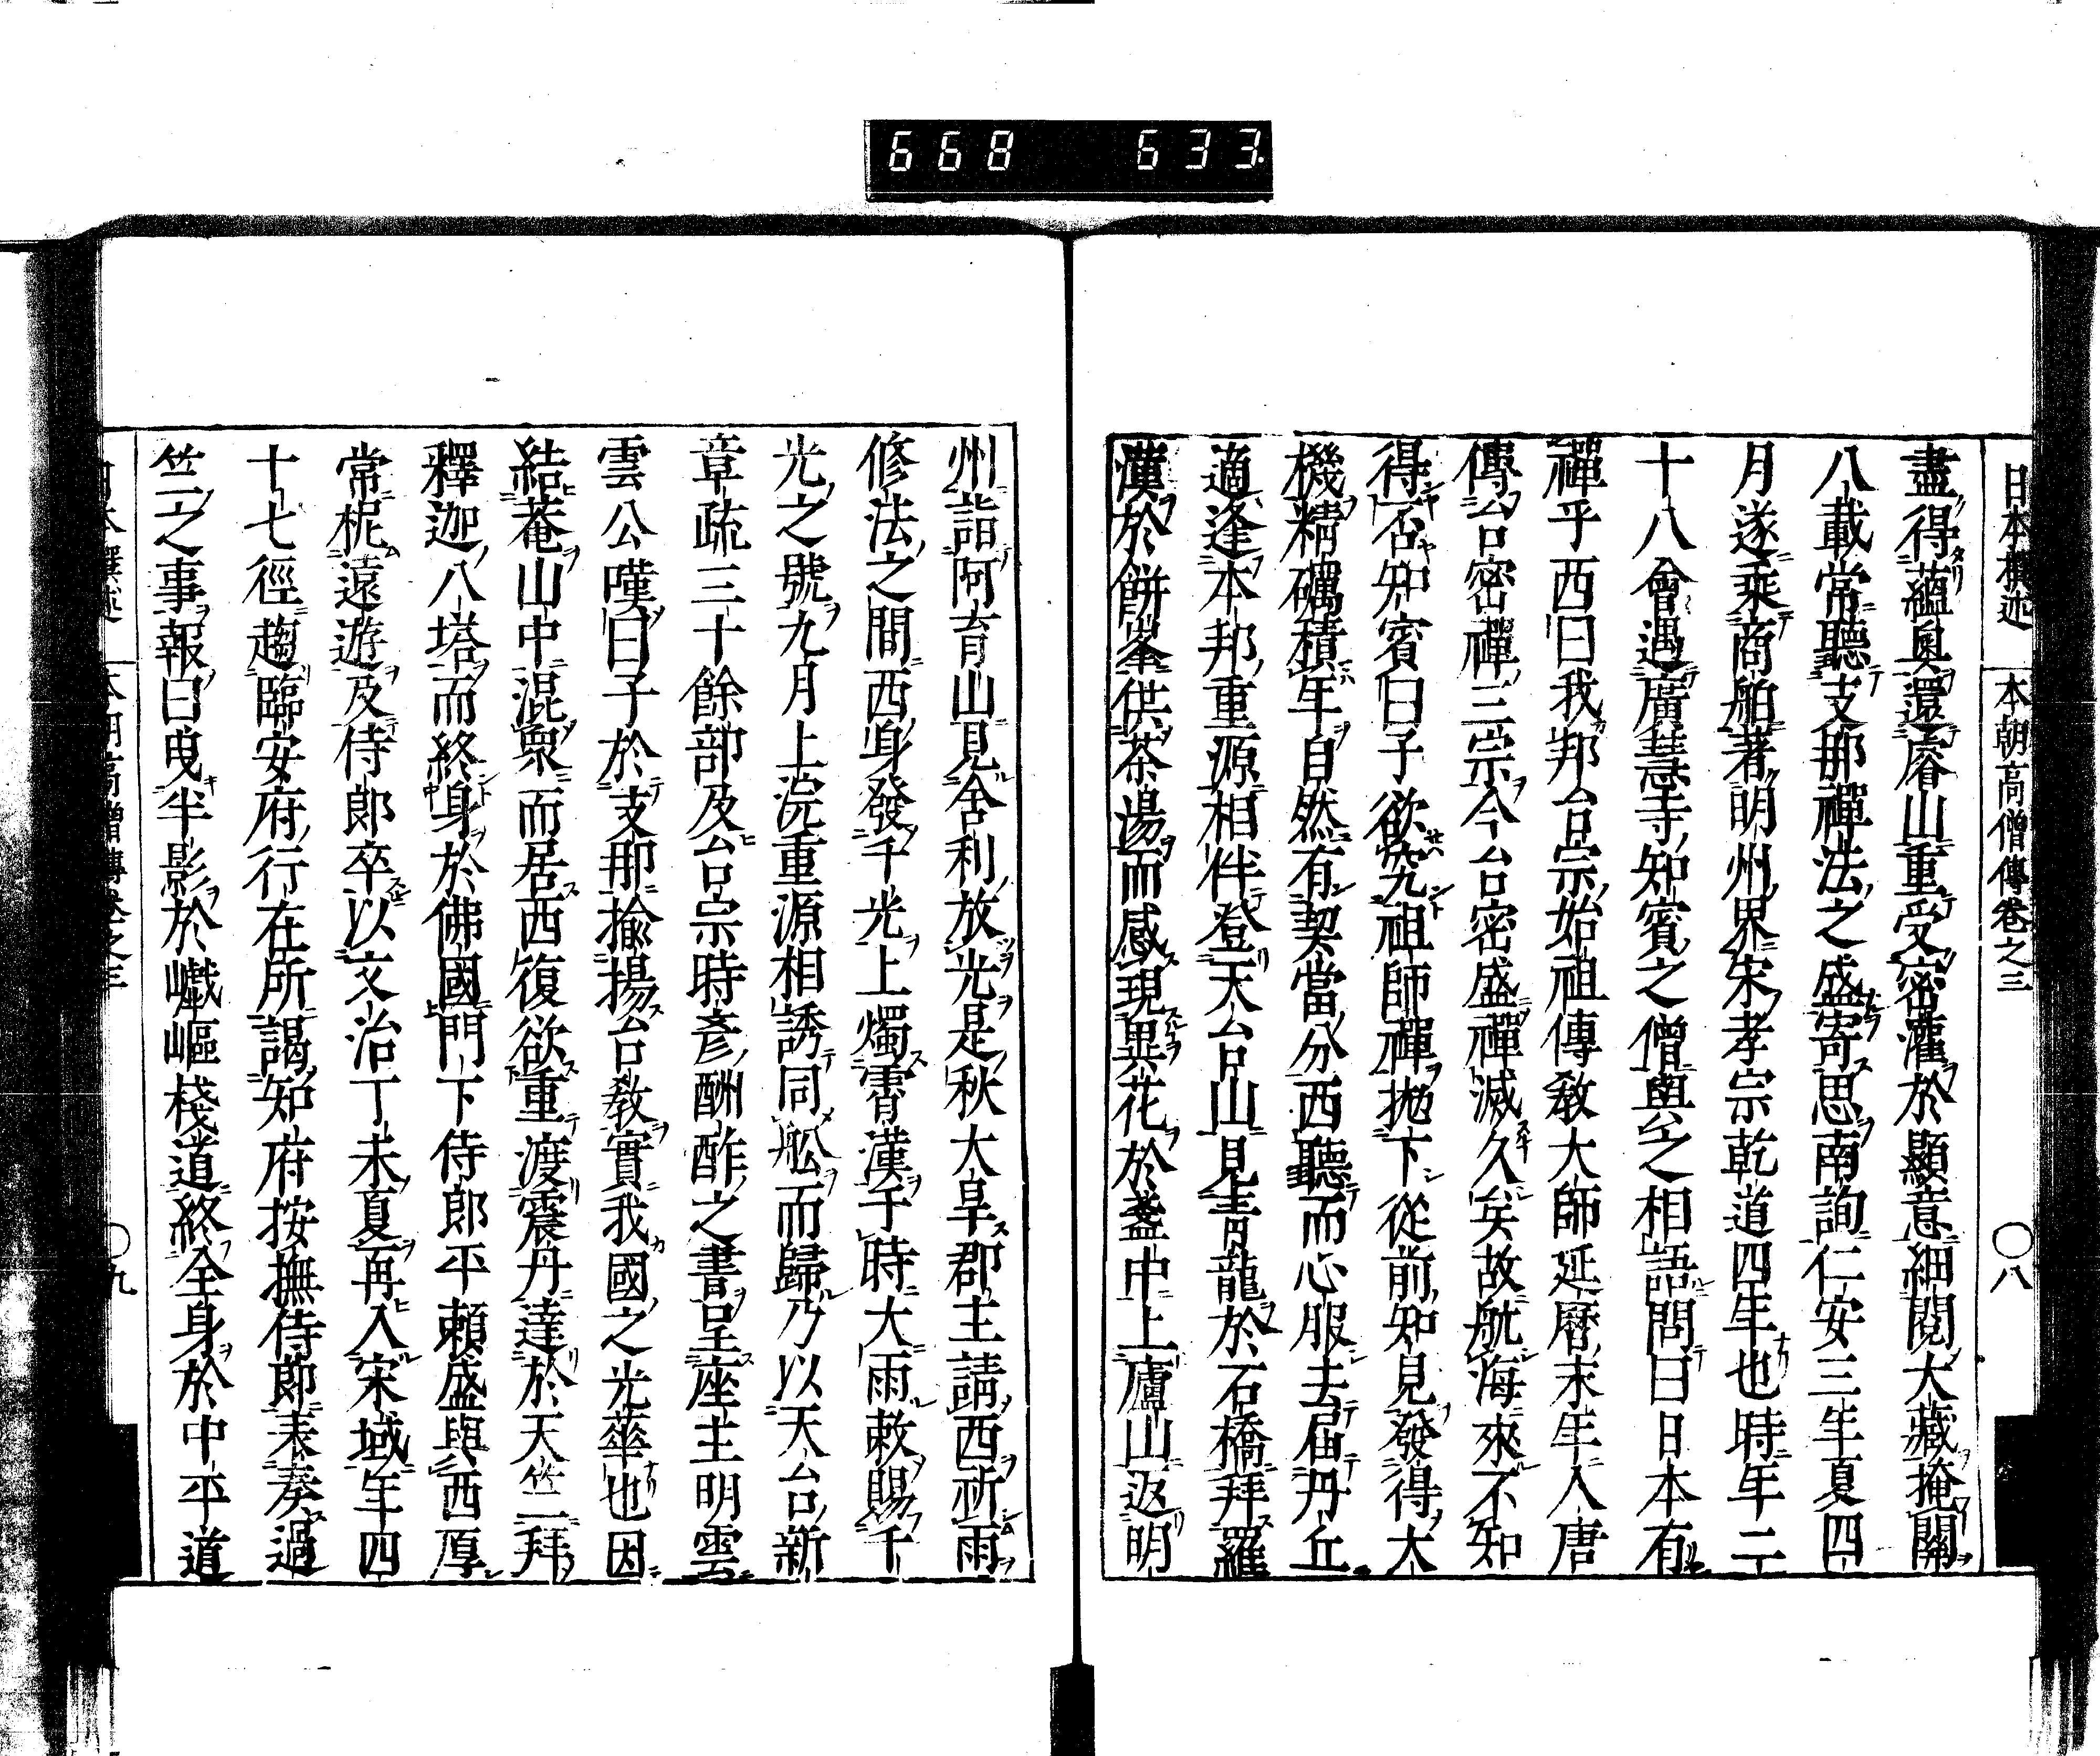 668 633.
日本撰述 本朝高僧傳卷之三 〇八
盡得蘊奧還睿山重受密灌於顯意細閱大藏掩關
八載常聽支那禪法之盛寄思南詢仁安三年夏四
月遂乘商舶著明州界宋孝宗乾道四年也時年二
十八會遇廣慧寺知賓之僧與之相語問曰日本有
禪乎西曰我邦台宗始祖傳教大師延曆末年入唐
傳台密禪三宗今台密盛禪滅久矣故航海來不知
得否知賓曰子欲究祖師禪拋下從前知見發得大
機精礪積年自然有契當分西聽而心服去屆丹丘
適逢本邦重源相伴登天台山見青龍於石橋拜羅
漢於餅峯供茶湯而感現異花於盞中上廬山返明
州詣阿育山見舍利放光是秋大旱郡主請西祈雨
修法之間西身發千光上燭霄漢于時大雨敕賜千
光之號九月上浣重源相誘同舩而歸乃以天台新
章疏三十餘部及台宗時彥酬酢之書呈座主明雲
雲公嘆曰子於支那揄揚台教實我國之光華也因
結菴山中混衆而居西復欲重渡震丹達於天竺拜
釋迦八塔而終身於佛國門下侍郎平賴盛與西厚
常柅遠遊及侍郎卒以文治丁未夏再入宋域年四
十七徑趨臨安府行在所謁知府按撫侍郎表奏過
竺之事報曰曳半影於巇嶇棧道終全身於中平道
日本撰述 本朝高僧傳卷之三 〇九